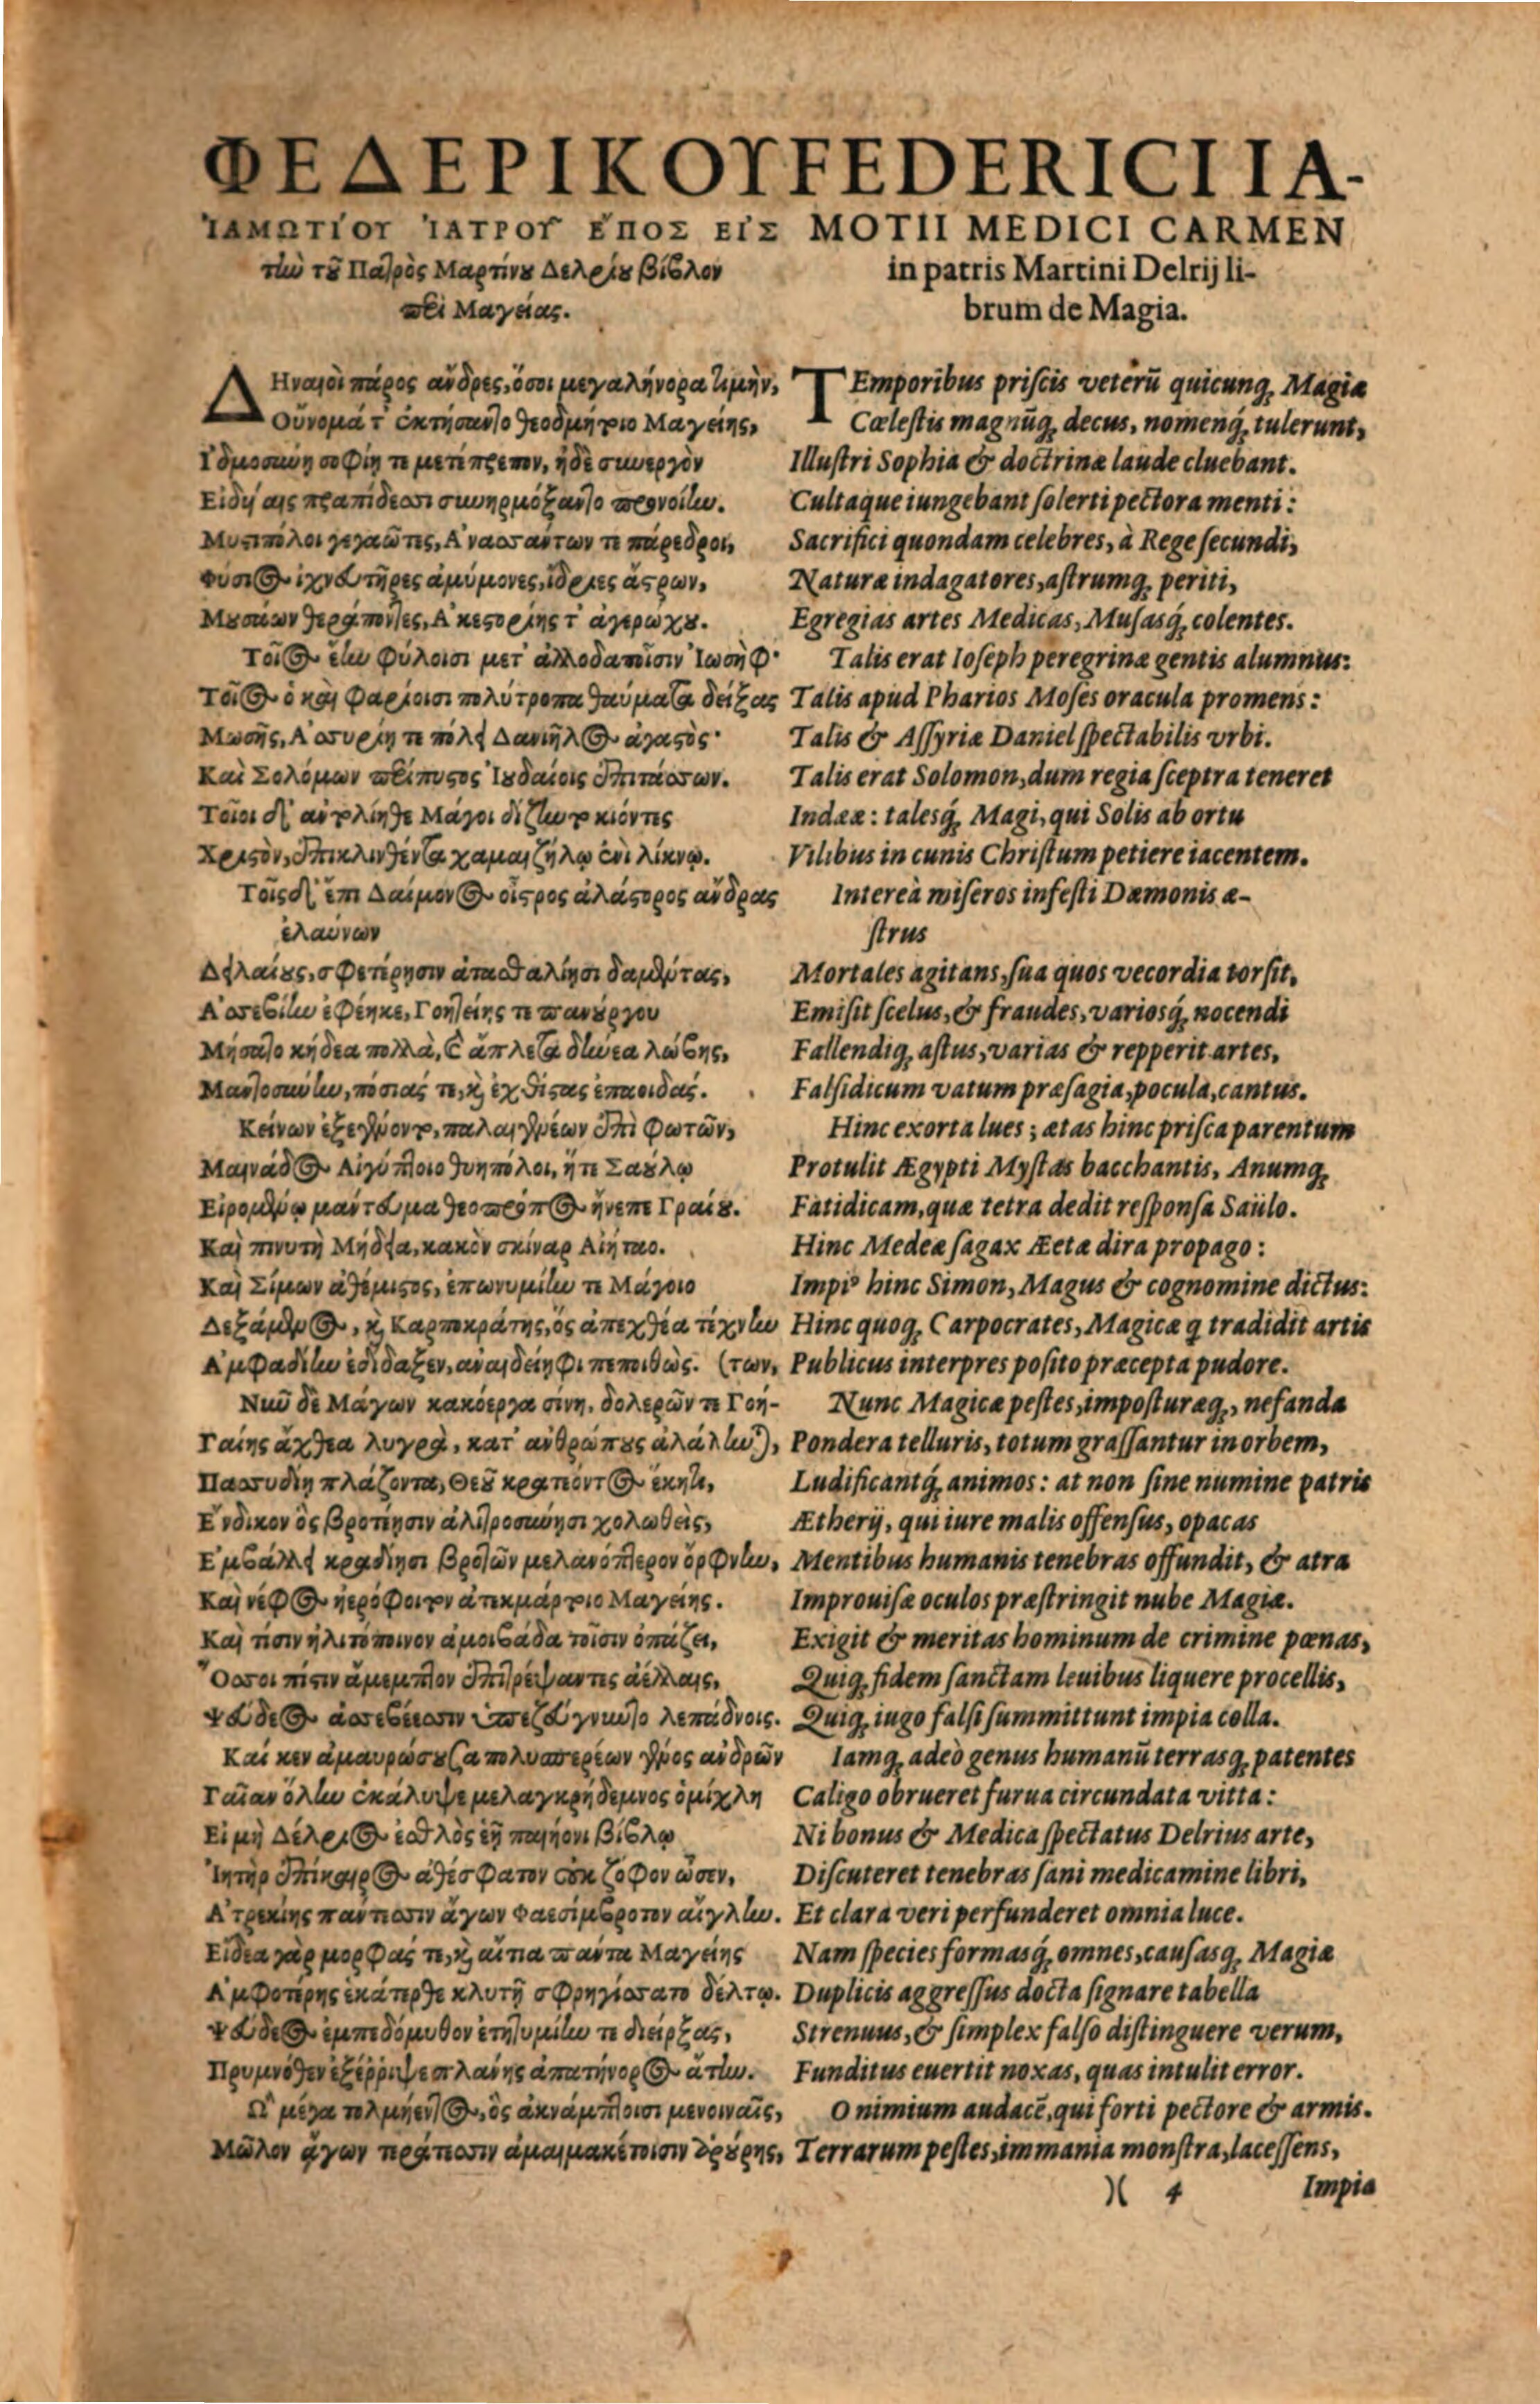 ΦΕΔΕΡΙΚΟΥ
ἸΑΜΩΤΊΟΥ ἸΑΤΡΟΥ͂ ἜΠΟΣ ΕἸΣ
τὴν τοῦ Πατρὸς Μαρτίνου Δελρίου βίβλον
περὶ Μαγείας.
ΔΗναιοὶ πάρος ἄνδρες, ὅσοι μεγαλήνορα τιμὴν,
Οὔνομά τ' ἐκτήσαντο θεοδμήτοιο Μαγείης,
Ἰδμοσύνη σοφίη τε μετέπρεπον, ἠδὲ συνεργὸν
Εἰδυίαις πραπίδεσσι συνηρμόξαντο προνοίην.
Μυστιπόλοι γεγαῶτες, Ἀνασσάντων τε πάρεδροι,
Φύσιος ἰχνευτῆρες ἀμύμονες, ἴδριες ἄστρων,
Μουσάων θεράποντες, Ἀκεστορίης τ' ἀγερώχου.
Τοῖος ἔην φύλοισι μετ' ἀλλοδαποῖσιν Ἰωσήφ·
Τοῖος ὁ καὶ Φαρίοισι πολύτροπα θαύματα δείξας
Μωσῆς, Ἀσσυρίη τε πόλει Δανιῆλος ἀγαστός·
Καὶ Σολόμων περίπυστος Ἰουδαίοις ἐπιτάσσων.
Τοῖοι δ' ἀντολίηθε Μάγοι δίζηντο κιόντες
Χριστὸν, ἐπικλινθέντα χαμαιζήλῳ ἐνὶ λίκνῳ.
Τοῖς δ' ἔπι Δαίμονος οἶστρος ἀλάστορος ἄνδρας
ἐλαύνων
Δειλαίους, σφετέρησιν ἀτασθαλίησι δαμέντας,
Ἀσσεβίην ἐφέηκε, Γοητείης τε πανούργου
Μήσατο κήδεα πολλὰ, καὶ ἄπλετα δήνεα λώβης,
Μαντοσύνην, πόσιάς τε, καὶ ἐχθίστας ἐπαοιδάς.
Κείνων ἐξεγένοντο, παλαιγενέων ἐπὶ φωτῶν,
Μαινάδος Αἰγύπτοιο θυηπόλοι, ἥτε Σαούλῳ
Εἰρομένῳ μάντευμα θεοπρόπος ἤνεπε Γραίη.
Καὶ πινυτὴ Μήδεια, κακὸν σκίναρ Αἰήταο.
Καὶ Σίμων ἀθέμιστος, ἐπωνυμίην τε Μάγοιο
Δεξάμενος, καὶ Καρποκράτης, ὃς ἀπεχθέα τέχνην
Ἀμφαδίην ἐδίδαξεν, ἀναιδείηφι πεποιθώς. (των,
Νῦν δὲ Μάγων κακόεργα σίνη, δολερῶν τε Γοή-
Γαίης ἄχθεα λυγρὰ, κατ' ἀνθρώπους ἀλάληνται,
Πασσυδίη πλάζοντα, Θεοῦ κρατέοντος ἕκητι,
Ἔνδικον ὃς βροτέησιν ἀλιτροσύνησι χολωθεὶς,
Ἐμβάλλει κραδίησι βροτῶν μελανόπτερον ὄρφνην,
Καὶ νέφος ἠερόφοιτον ἀτεκμάρτοιο Μαγείης.
Καὶ τίσιν ἠλιτόποινον ἀμοιβάδα τοῖσιν ὀπάζει,
Ὅσσοι πίστιν ἄμεμπτον ἐπιτρέψαντες ἀέλλαις,
Ψεύδεος ἀσσεβέεσσιν ὑπεζεύγνυντο λεπάδνοις.
Καί κεν ἀμαυρώσουσα πολυσπερέων γένος ἀνδρῶν
Γαῖαν ὅλην ἐκάλυψε μελαγκρήδεμνος ὀμίχλη
Εἰ μὴ Δέλριος ἐσθλὸς ἑῇ παιήονι βίβλῳ
Ἰητὴρ ἐπίκαιρος ἀθέσφατον ἐκ ζόφον ὦσεν,
Ἀτρεκίης πάντεσσιν ἄγων φαεσίμβροτον αἴγλην.
Εἴδεα γὰρ μορφάς τε, καὶ αἴτια πάντα Μαγείης
Ἀμφοτέρης ἑκάτερθε κλυτῇ σφρηγίσσατο δέλτῳ.
Ψεύδεος ἐμπεδόμυθον ἐτητυμίην τε διείρξας,
Πρυμνόθεν ἐξέρριψε πλάνης ἀπατήνορος ἄτην.
Ὦ μέγα τολμήεντος, ὃς ἀκνάμπτοισι μενοιναῖς,
Μῶλον ἄγων τεράτεσσιν ἀμαιμακέτοισιν ἀρούρης,
FEDERICI IA-
MOTII MEDICI CARMEN
in patris Martini Delrij li-
brum de Magia.
TEmporibus priscis veterũ quicunq; Magiæ
Cælestis magnũq; decus, nomenq́; tulerunt,
Illustri Sophia & doctrinæ laude cluebant.
Cultaque iungebant solerti pectora menti:
Sacrifici quondam celebres, à Rege secundi,
Naturæ indagatores, astrumq; periti,
Egregias artes Medicas, Musasq́; colentes.
Talis erat Ioseph peregrinæ gentis alumnus:
Talis apud Pharios Moses oracula promens:
Talis & Assyriæ Daniel spectabilis vrbi.
Talis erat Solomon, dum regia sceptra teneret
Indææ: talesq́; Magi, qui Solis ab ortu
Vilibus in cunis Christum petiere iacentem.
Intereà miseros infesti Dæmonis æ-
strus
Mortales agitans, sua quos vecordia torsit,
Emisit scelus, & fraudes, variosq́; nocendi
Fallendiq; astus, varias & repperit artes,
Falsidicum vatum præsagia, pocula, cantus.
Hinc exorta lues; ætas hinc prisca parentum
Protulit Ægypti Mystas bacchantis, Anumq;
Fatidicam, quæ tetra dedit responsa Saülo.
Hinc Medea sagax Æetæ dira propago:
Impiꝰ hinc Simon, Magus & cognomine dictus:
Hinc quoq; Carpocrates, Magicæ q tradidit artis
Publicus interpres posito præcepta pudore.
Nunc Magicæ pestes, imposturæq;, nefanda
Pondera telluris, totum grassantur in orbem,
Ludificantq́; animos: at non sine numine patris
Ætherij, qui iure malis offensus, opacas
Mentibus humanis tenebras offundit, & atra
Improuisæ oculos præstringit nube Magiæ.
Exigit & meritas hominum de crimine pœnas,
Quiq; fidem sanctam leuibus liquere procellis,
Quiq; iugo falsi summittunt impia colla.
Iamq; adeò genus humanũ terrasq; patentes
Caligo obrueret furua circundata vitta:
Ni bonus & Medica spectatus Delrius arte,
Discuteret tenebras sani medicamine libri,
Et clara veri perfunderet omnia luce.
Nam species formasq́; omnes, causasq; Magiæ
Duplicis aggressus docta signare tabella
Strenuus, & simplex falso distinguere verum,
Funditus euertit noxas, quas intulit error.
O nimium audacẽ, qui forti pectore & armis.
Terrarum pestes, immania monstra, lacessens,
)( 4 Impia